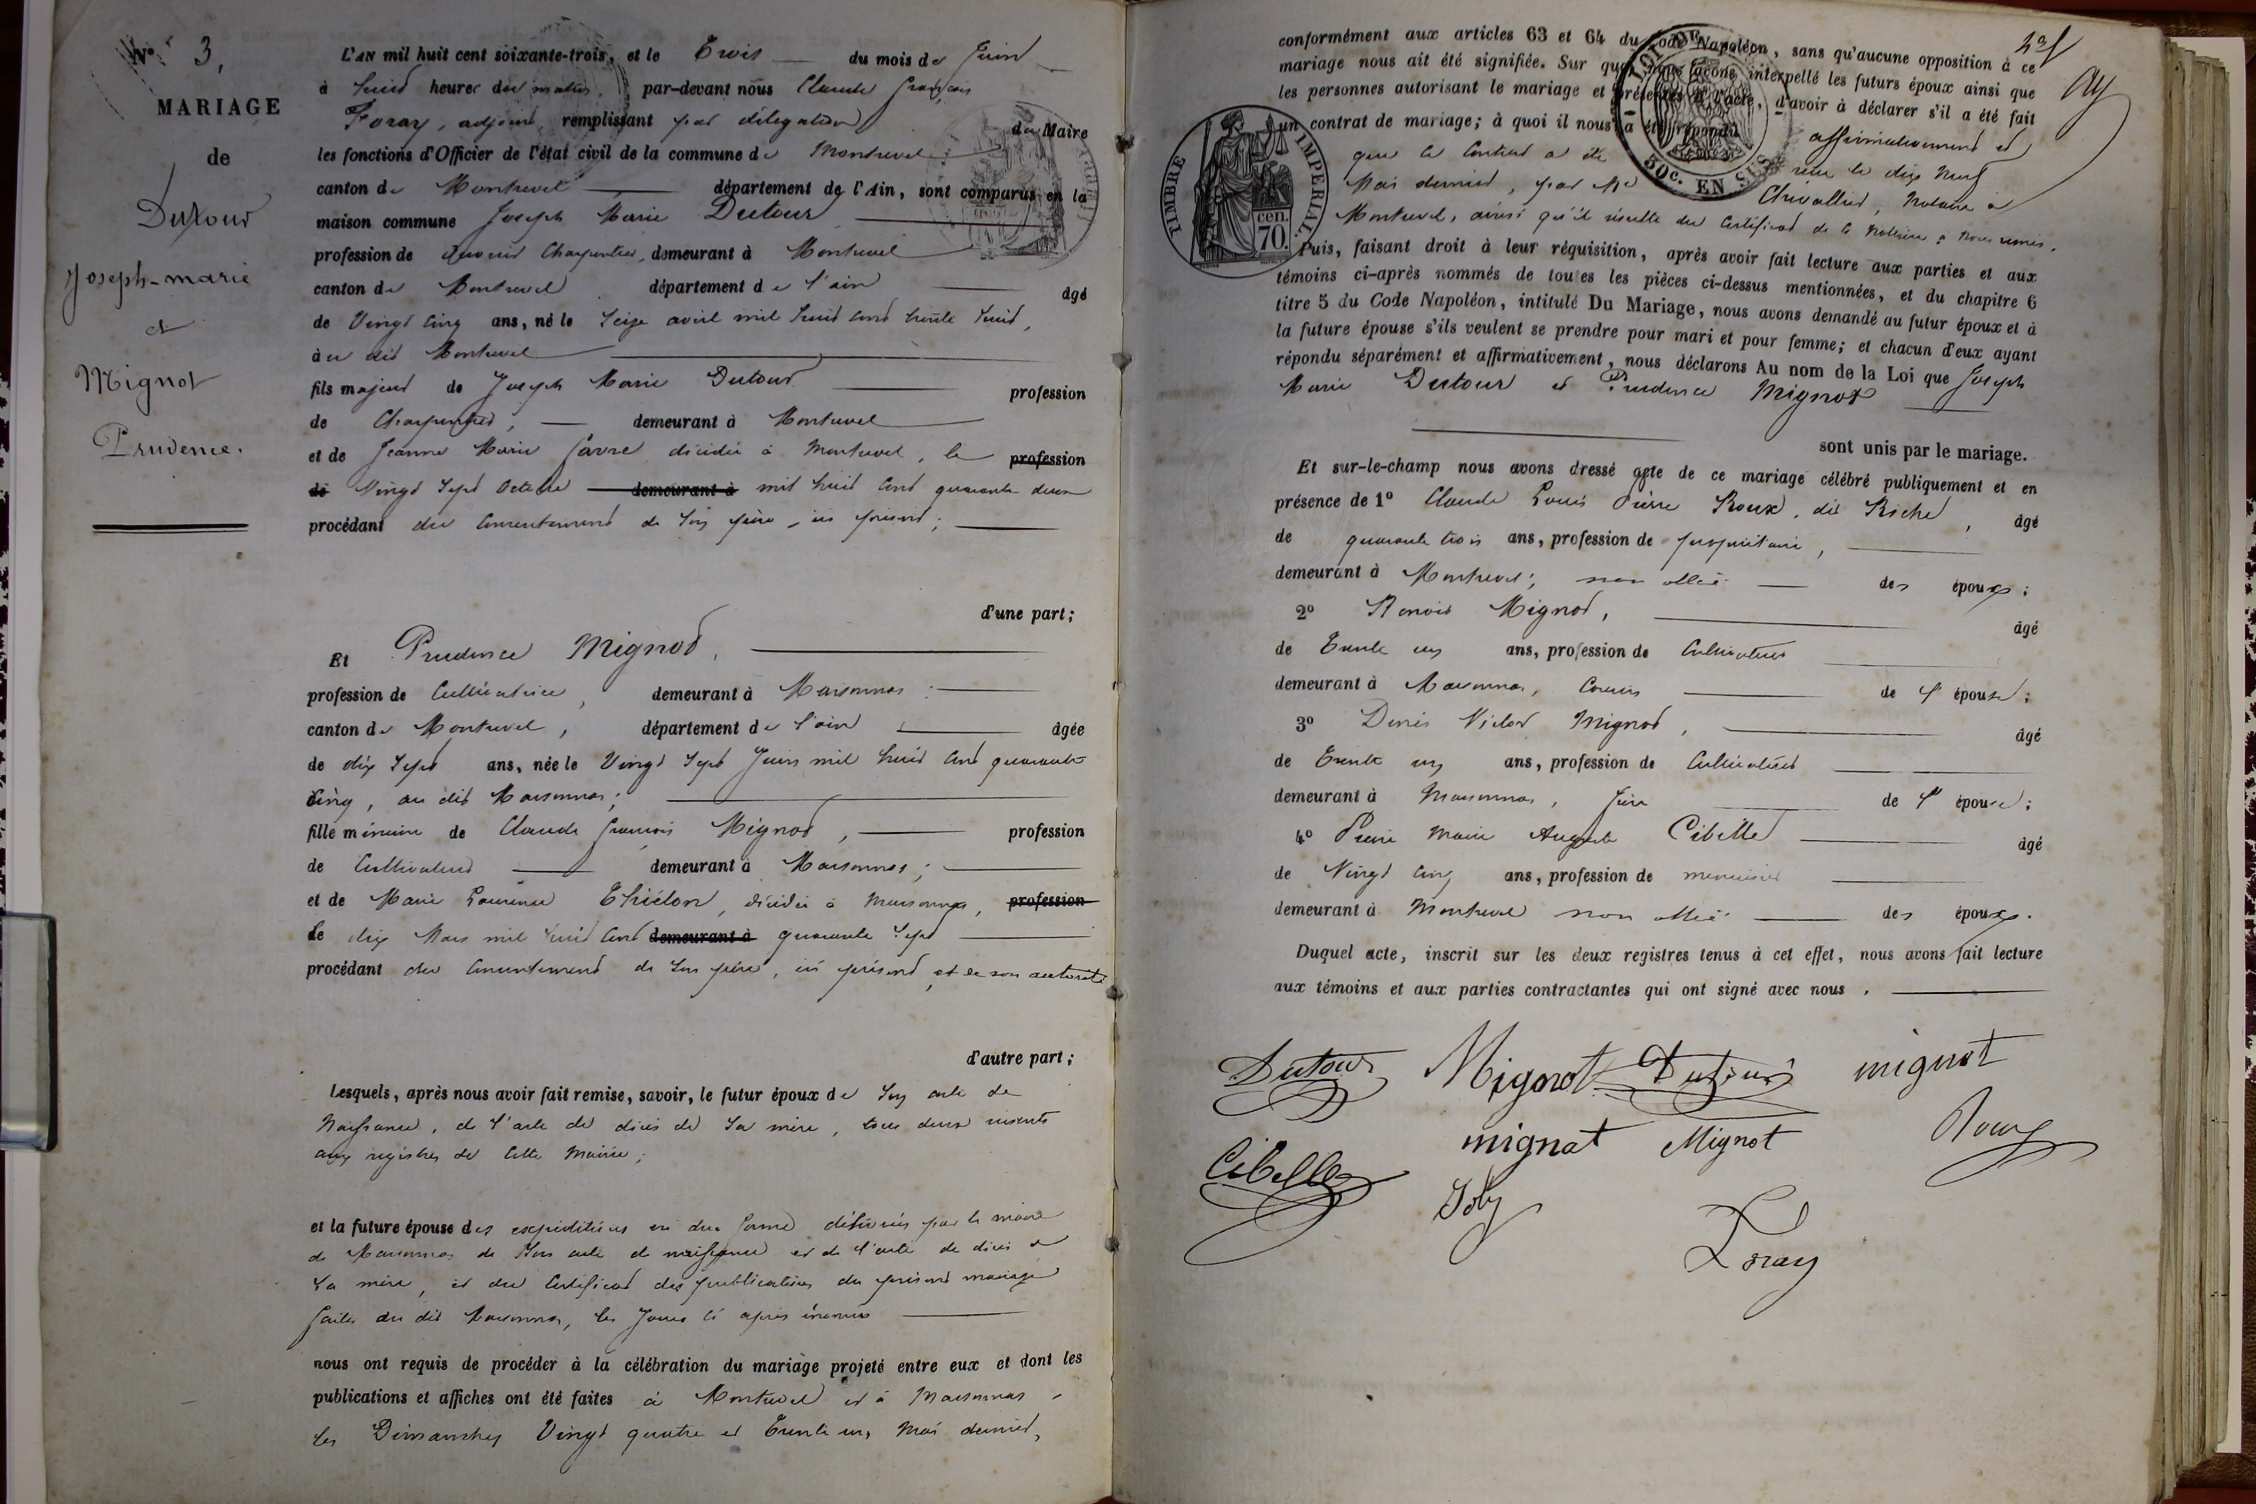 N° 3,
MARIAGE
de
Dutour
Joseph-marie
et
Mignot
Prudence.
L'AN mil huit cent soixante-trois, et le Trois du mois de Juin
à huit heures du matin, par-devant nous Claude François
Foray, adjoint, remplissant par délégation du Maire
les fonctions d'Officier de l'état civil de la commune de Montrevel,
canton de Montrevel département de l'Ain, sont comparus en la
maison commune Joseph Marie Dutour
profession de ouvrier Charpentier, demeurant à Montrevel
canton de Montrevel département de l'ain âgé
de Vingt cinq ans, né le Seize avril mil huit cent trente huit,
au dit Montrevel
fils majeur de Joseph Marie Dutour profession
de Charpentier, demeurant à Montrevel
et de Jeanne Marie Favre décédée à Montrevel, le profession
de Vingt Sept Octobre demeurant à mil huit cent quarante deux
procédant du Consentement de Son père, ici présent;
d'une part;
Et Prudence Mignot,
profession de Cultivatrice, demeurant à Marsonnas
canton de Montrevel, département de l'ain âgée
de dix Sept ans, née le Vingt Sept Juin mil huit cent quarante
cinq, au dit Marsonnas;
fille mineure de Claude François Mignot, profession
de Cultivateur demeurant à Marsonnas;
et de Marie Laurence Thiélon, décédée à Marsonnas, profession
le dix Mars mil huit cent demeurant à quarante Sept
procédant du Consentement de Son père, ici présent, et de son autorité
d'autre part;
Lesquels, après nous avoir fait remise, savoir, le futur époux de Son acte de
Naissance, de l'acte de décès de Sa mère, tous deux inscrits
aux registres de Cette Mairie;
et la future épouse des expéditions en due forme délivrées par le maire
de Marsonnas de Son acte de naissance et de l'acte de décès de
Sa mère, et du Certificat des publications du présent mariage
faites au dit Marsonnas, les Jours ci après énoncés
nous ont requis de procéder à la célébration du mariage projeté entre eux et dont les
publications et affiches ont été faites à Montrevel et à Marsonnas,
les Dimanches Vingt quatre et Trente un, Mai dernier,
conformément aux articles 63 et 64 du Code Napoléon, sans qu'aucune opposition à ce
mariage nous ait été signifiée. Sur quoi nous avons interpellé les futurs époux ainsi que
les personnes autorisant le mariage et présentes à l'acte, d'avoir à déclarer s'il a été fait
un contrat de mariage; à quoi il nous a été répondu affirmativement et
que ce Contrat a été reçu le dix neuf
Mai dernier, par Me Chevallier, Notaire à
Montrevel, ainsi qu'il résulte du Certificat de ce Notaire à nous remis.
TIMBRE IMPERIAL.
cen.
70.
LOI DE
50c. EN SUS
Puis, faisant droit à leur réquisition, après avoir fait lecture aux parties et aux
témoins ci-après nommés de toutes les pièces ci-dessus mentionnées, et du chapitre 6
titre 5 du Code Napoléon, intitulé Du Mariage, nous avons demandé au futur époux et à
la future épouse s'ils veulent se prendre pour mari et pour femme; et chacun d'eux ayant
répondu séparément et affirmativement, nous déclarons Au nom de la Loi que Joseph
Marie Dutour et Prudence Mignot
sont unis par le mariage.
Et sur-le-champ nous avons dressé acte de ce mariage célébré publiquement et en
présence de 1° Claude Louis Pierre Roux, dit Riche, âgé
de quarante trois ans, profession de propriétaire,
demeurant à Montrevel; non allié des époux;
2° Benoit Mignot, âgé
de Trente un ans, profession de Cultivateur
demeurant à Marsonnas, Cousin de l'épouse;
3° Denis Victor Mignot, âgé
de Trente un ans, profession de Cultivateur
demeurant à Marsonnas, frère de l'épouse;
4° Pierre Marie Auguste Cibelle âgé
de Vingt Cinq ans, profession de menuisier
demeurant à Montrevel non allié des époux.
Duquel acte, inscrit sur les deux registres tenus à cet effet, nous avons fait lecture
aux témoins et aux parties contractantes qui ont signé avec nous.
Dutour Mignot Dutour mignot
mignot Mignot Roux
Cibelle Joly
Foray